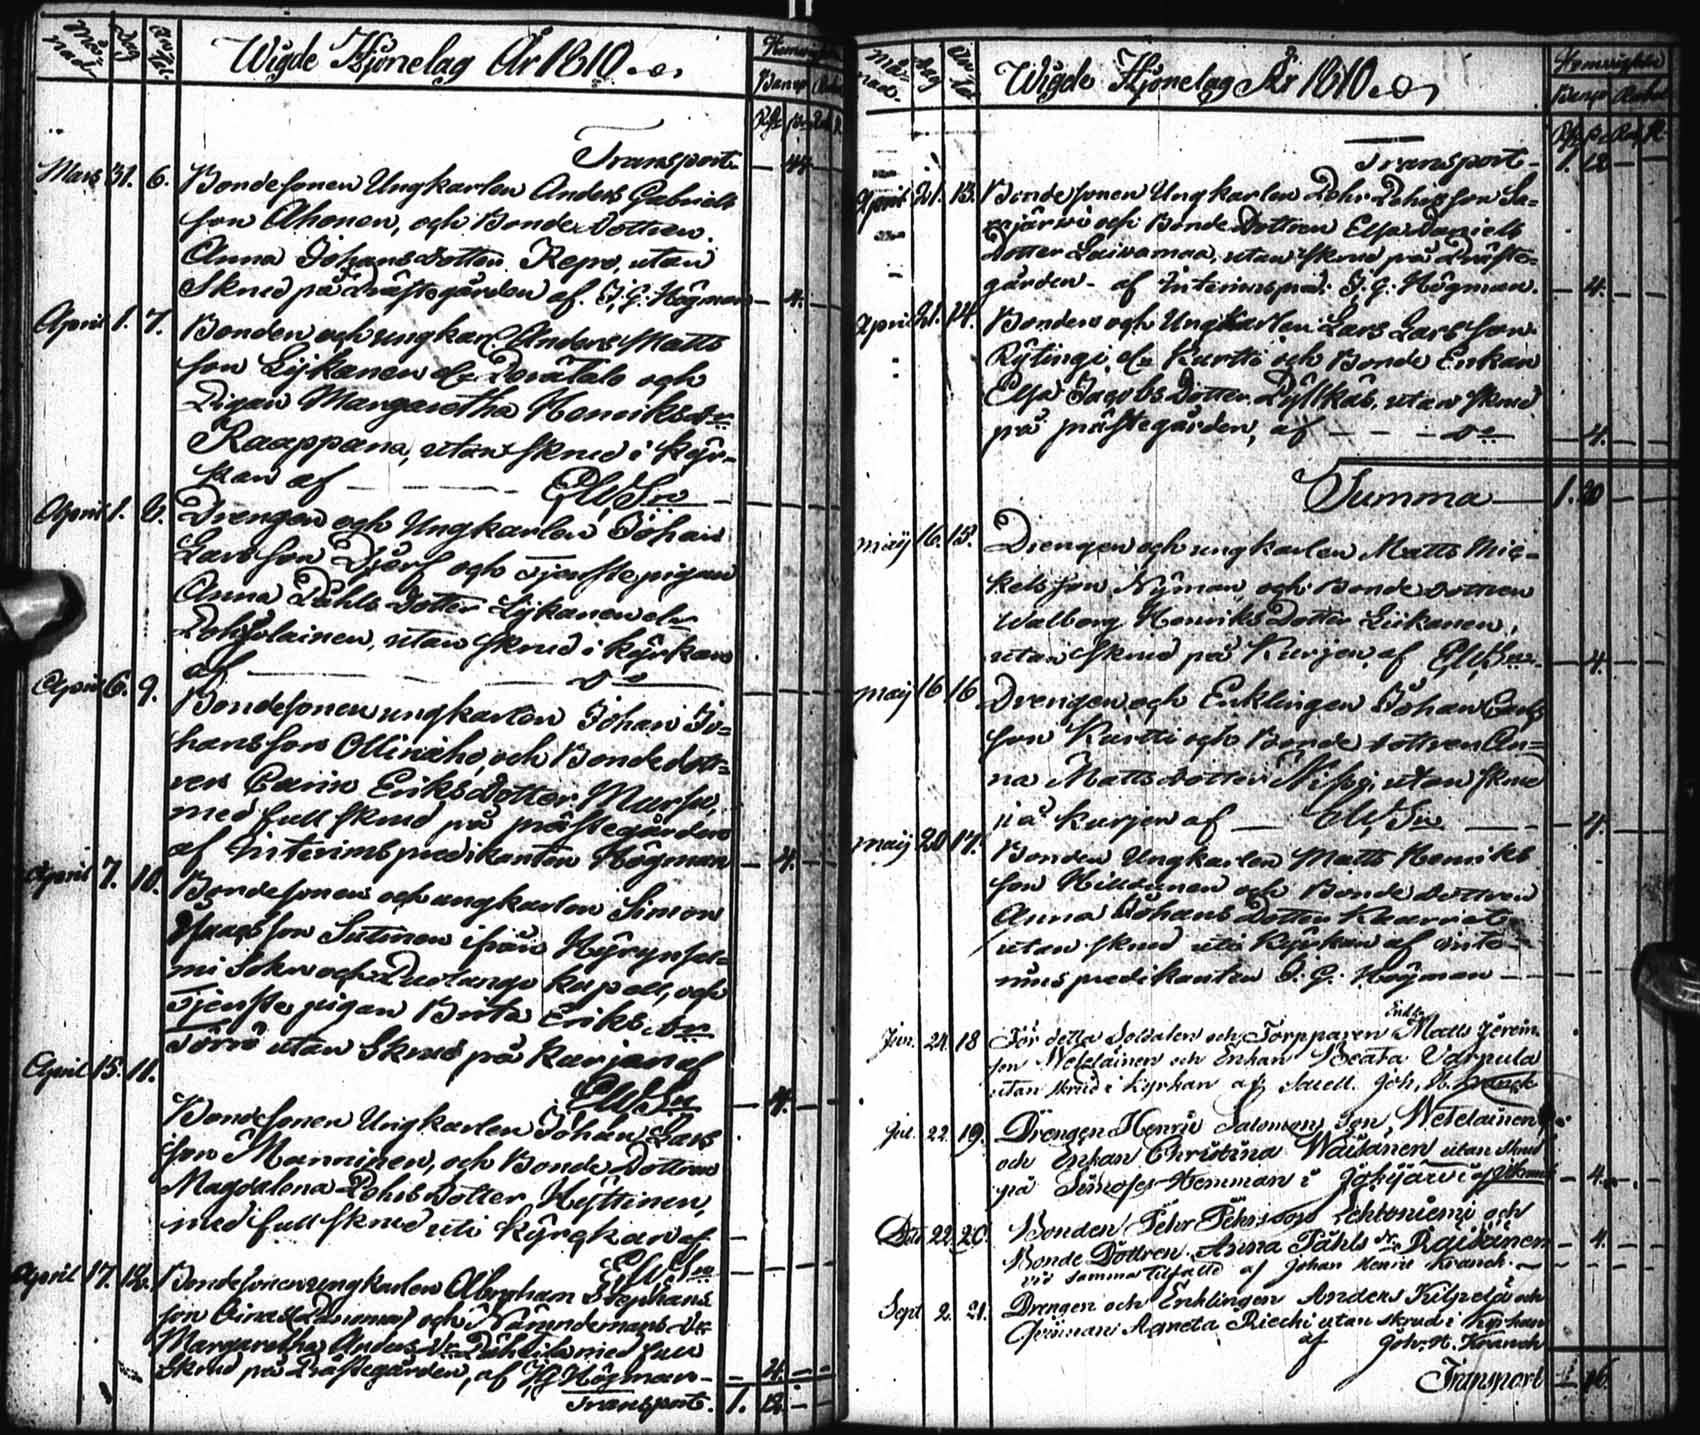 Månad Dag Antal Wigde Hjonelag År 1810.
Banco
Transport — 44
Mars 31. 6. Bondesonen Ungkarlen Anders Gabriels
son Ahonen, och Bonde Dottren
Anna Johans Dotter Repo, utan
Skrud på Prästegården af J: G: Högman — 4.
April 1. 7. Bonden och ungkarl. Anders Matts
son Lÿkanen och
Pigan Margaretha Henriks Dr
Raappana, utan skrud i Kÿr-
kan af
April 1. 8. Drengen och Ungkarlen Johan
Larsson och Tjenstepigan
Anna Påhls Dotter Lÿkanen
Pohjolainen, utan skrud i kÿrkan
af — Do
April 6. 9. Bondesonen ungkarlen Johan Jo-
hansson Ollinaho, och Bondedott-
ren Carin Eriks Dotter Mursu,
med full skrud på prästegården
af Interimspredikanten Högman — 4.
April 7. 10. Bondesonen och ungkarlen Simon
Isaacsson Sutinen ifrån Hÿrynsal-
mi Sokn och Puolango kapell, och
Tjenste pigan Brita Eriks Dr
Törrö utan skrud på Kurjen af
4.
April 15. 11. Bondesonen Ungkarlen Johan Lars
son Manninen, och Bonde Dottren
Magdalena Pehrs Dotter Hÿttinen,
med full skrud uti kÿrckan af
April 17. 12. Bondesonen ungkarlen Abraham Stephans
son och Nämndemans Dr
Margaretha Anders Dr med full
Skrud på Prästegården, af J G Högman — 4.
Transport. 1. 12.
Månad Dag Antal Wigde Hjonelag År 1810.
Banco
Transport 1. 12
April 21. 13. Bondesonen Ungkarlen Pehr Pehrsson Sa-
och Bonde Dottren Elsa Daniels
Dotter Laivamaa, utan skrud på Präste-
gården af Interimspred: J. G: Högman. 4.
April 21. 14. Bonden och Ungkarlen Lars Larsson
Rÿtingi, Kurtti och Bonde Enkan
Elsa Jacobs Dotter Pÿlkäs, utan skrud
på prästegården, af — Do — 4.
Summa 1. 20
maÿ 16. 15. Drengen och ungkarlen Matts Mic-
kelsson Nÿman och Bonde dottren
Walborg Henriks Dotter Liikanen,
utan skrud på Kurjen, af 4.
maÿ 16 16 Drengen och Enklingen Johan
son Kurtti och Bonde dottren An-
na Matts Dotter utan skrud
på kurjen af 4.
maÿ 20 17. Bonden Ungkarlen Matts Henriks
son Hiltunen och Bonde Dottren
Anna Johans Dotter
utan skrud uti Kÿrkan af inte-
rims predikanten J. G. Högman
Jun. 24 18 För detta Soldaten och Torpparen Enkl. Matts
son Wetelainen och Enkan Beata Varpula
utan skrud i kyrkan af Joh. H. Kranck
Jul. 22. 19. Drengen Henric Salomons Son, Wetelainen
och Enkan Christina Wäisänen utan skrud
på Hemman i Jokijärvi af 4.
Dito 22. 20. Bonden Pehr Pehrsson Lehtoniemi och
Bonde Dottren Anna Påhls Dr Raisänen
vid samma tillfälle af Johan Henric Kranck. 4.
Sept 2. 21. Drengen och Enklingen Anders Kilpelä och
Agneta Riechi utan skrud i Kyrkan
af Joh. H. Kranck
Transport 16